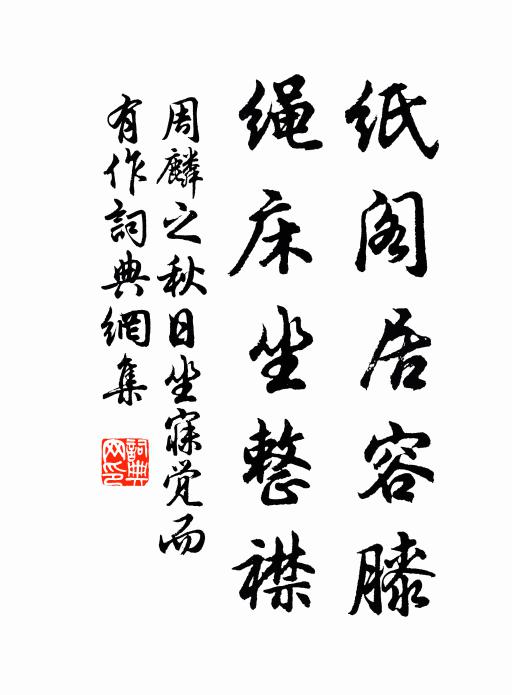 纸阁居容膝
绳床坐整襟
周麟之秋日坐寐觉而
有作词典網集
詞典
网印